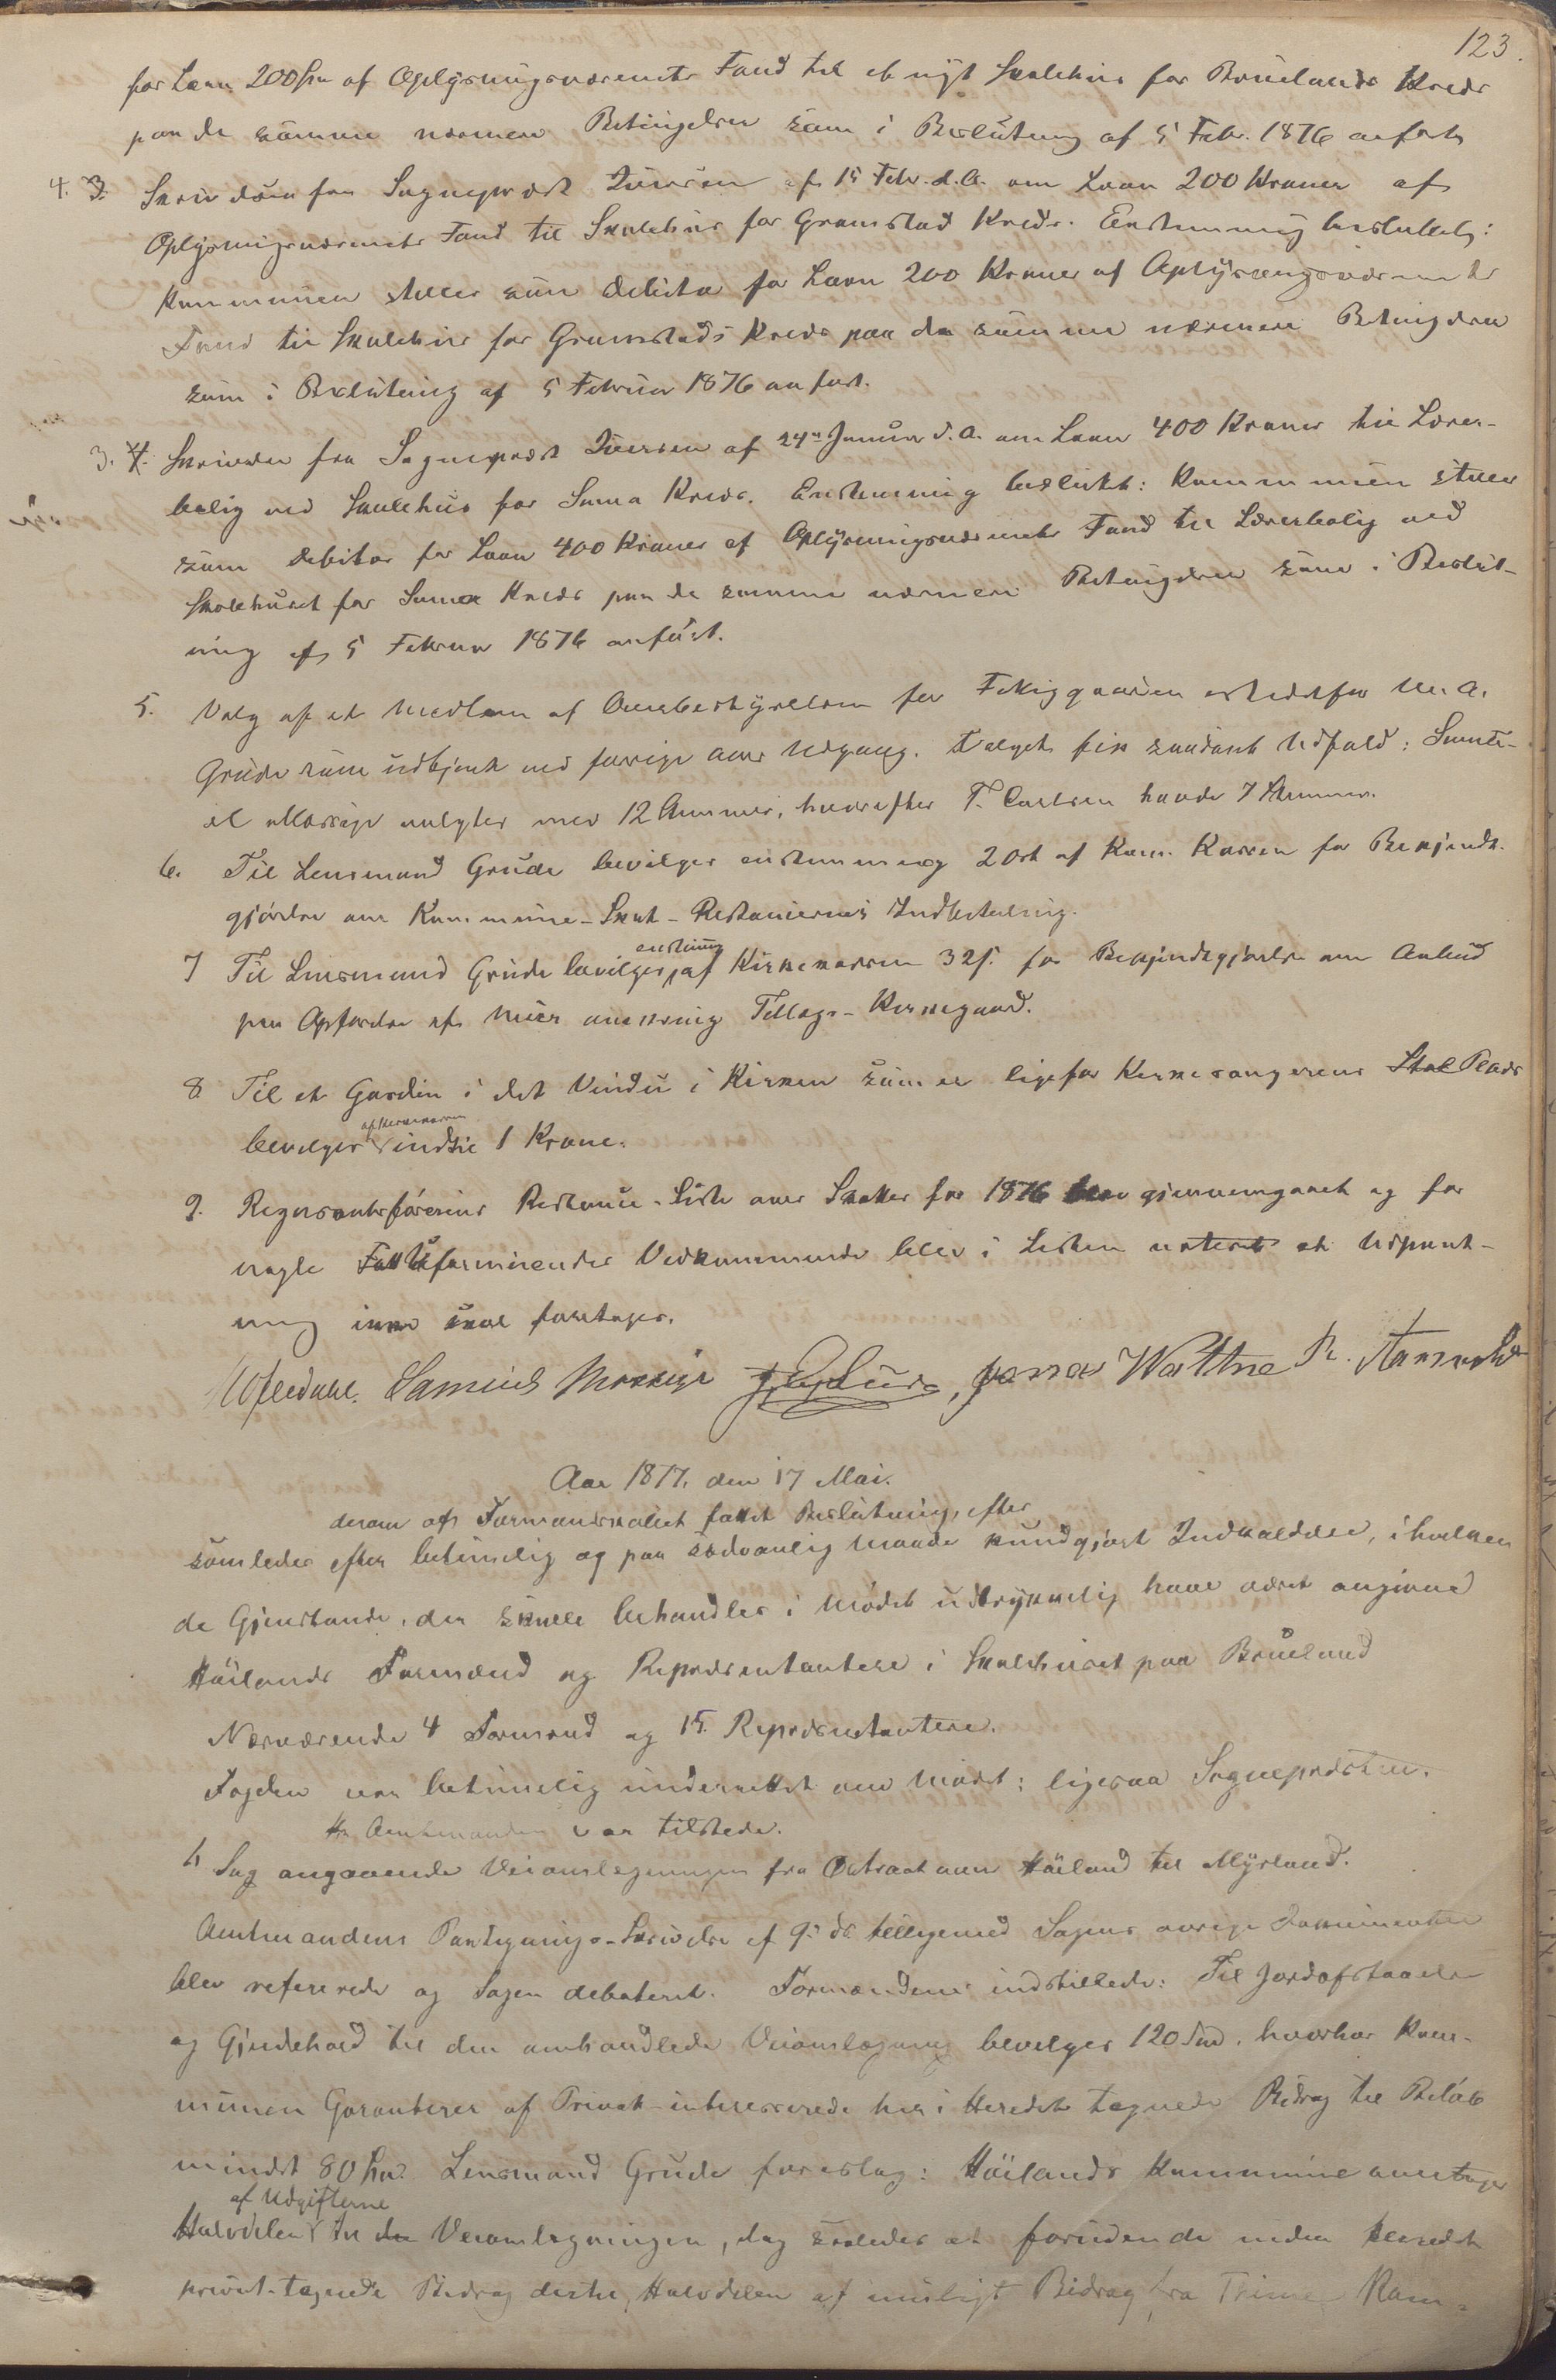 123.
for Laan 200 Kr af Oplysningsvæsenets Fond til et nyt Skolehus for Bruelands Kreds
paa de samme nærmere Betingelser som i Beslutning af 5 Febr. 1876 anført
4. 3. Skrivelse fra Sognepræst Iversen af 15 Febr. d.A. om Laan 200 Kroner af
Oplysningsvæsenets Fond til Skolehus for Gramstad Kreds. Enstemmig besluttet:
Kommunen stiller som Debitor for Laan 200 Kroner af Oplysningsvæsenets
Fond til Skolehus for Gramstads Kreds paa de samme nærmere Betingelser
som i Beslutning af 5 Februar 1876 anført.
3. 4. Skrivelse fra Sognepræst Iversen af 24de Januar d.A. om Laan 400 Kroner til Lærer-
bolig ved Skolehus for Soma Kreds. Enstemmig besluttet: Kommunen stiller
som Debitor for Laan 400 Kroner af Oplysningsvæsenets Fond til Lærerbolig ved
Skolehuset for Soma Kreds paa de samme nærmere Betingelser som i Beslut-
ning af 5 Februar 1876 anført.
5. Valg af et Medlem af Overbestyrelsen for Fattiggaarden istedetfor M. A.
Grude som udtjent ved forrige Aars Udgang. Valget fik saadant Udfald: Samu-
el Mossige valgtes med 12 Stemmer, hvorefter T. Carlsen havde 7 Stemmer.
6. Til Lensmand Grude bevilges enstemmig 2 Ort af Kom. Kassen for Bekjendt-
gjørelse om Kommune-Skat-Restancernes Indbetaling.
7 Til Lensmand Grude bevilges enstemmig af Kirkekassen 32 s. for Bekjendtgjørelse om Anbud
paa Opførelse af Muur omkring Tillægs-Kirkegaard.
8 Til et Gardin i det Vindu i Kirken som er ligefor Kirkesangerens Stol Plads
bevilges af Kirkekassen indtil 1 Krone.
9. Regnskabsførerens Restance-Liste over Skatter for 1876 blev gjennemgaaet og for
nogle Fattig formuendes Vedkommende blev i Listen noteret at Udpant-
ning ikke skal foretages.
Samuel Mossige Jonas Wattne
Aar 1877, den 17 Mai.
derom af Formandskabet fattet Beslutning, efter
samledes efter betimelig og paa sædvanlig Maade kundgjort Indkaldelse, i hvilken
de Gjenstande, der skulle behandles i Mødet udtrykkelig have været angivne
Høilands Formænd og Repræsentantere i Skolehuset paa Brueland
Nærværende 4 Formænd og 15 Repræsentantere.
Fogden var betimelig underrettet om Mødet; ligesaa Sognepræsten.
Hr Amtmanden var tilstede.
1, Sag angaaende Veiomlægningen fra Ostraat over Høiland til Myrland.
Amtmandens Paategnings-Skrivelse af 9de ds. tilligemed Sagens øvrige Dokumenter
blev refererede og Sagen debateret. Formændene indstillede: Til Jordafstaaelse
og Gjerdehold til den omhandlede Veiomlægning bevilges 120 Spd. hvorhos Kom-
munen Garanterer af Privat-interesserede her i Heredet tegnede Bidrag til Beløb
mindst 80 Spd. Lensmand Grude foreslog: Høilands Kommune overtager
Halvdelen af Udgifterne til den Veiomlægningen, dog saaledes at foruden de inden Heredet
privat-tegnede Bidrag dertil, Halvdelen af muligt Bidrag fra Thime Kom-